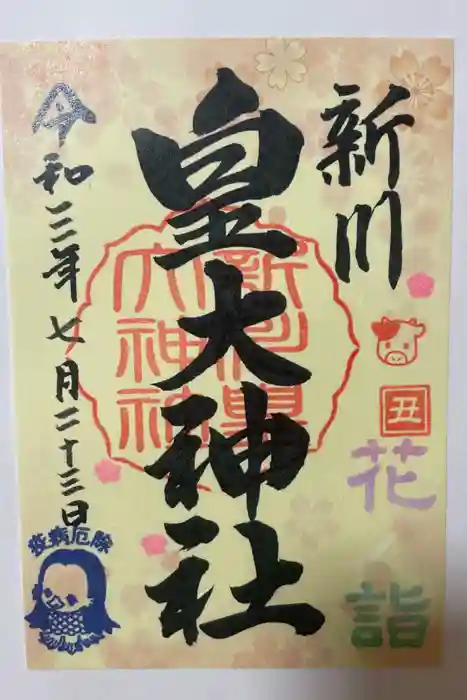 新川
丑
花
詣
皇大神社
新川皇
大神社
令和三年七月二十三日
疫病厄除